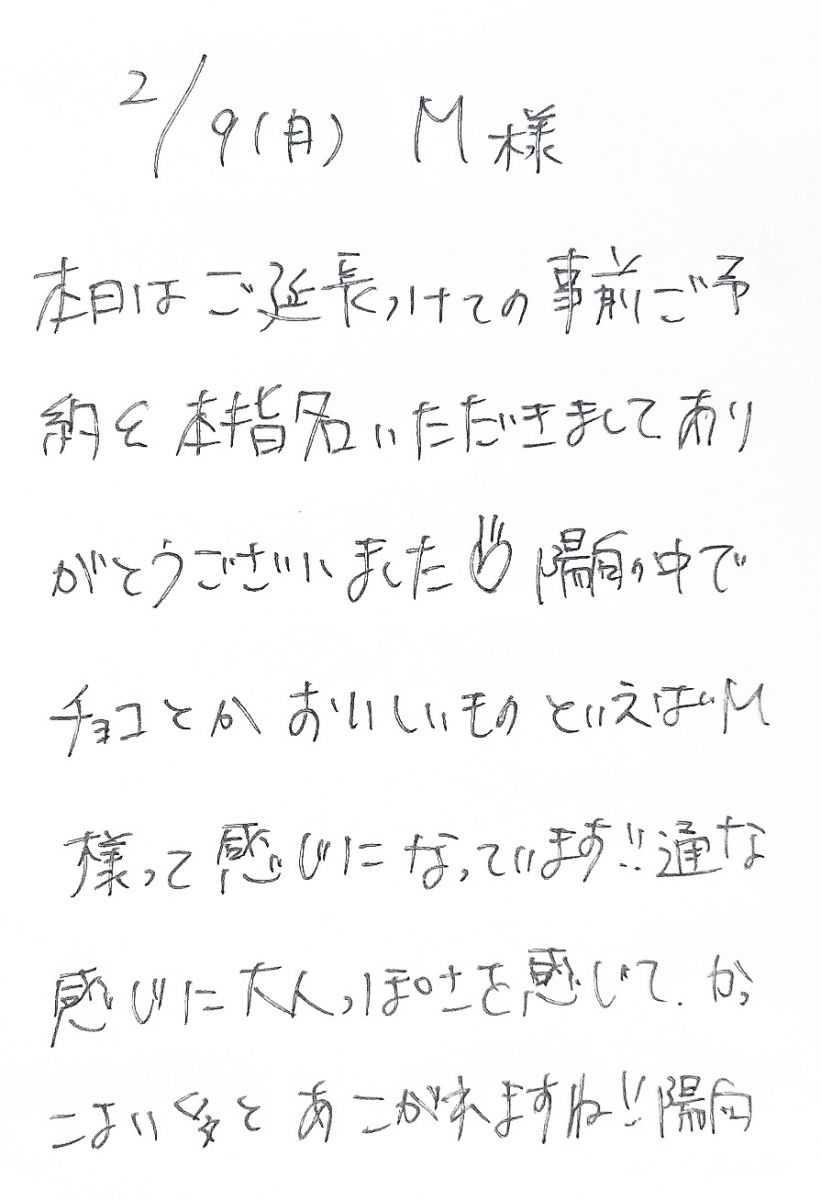 2/9(月) M様
本日はご延長つけての事前ご予
約を本指名いただきましてあり
がとうございました 陽向の中で
チョコとかおいしいものといえばM
様って感じになっています!!通な
感じに大人っぽさを感じて、かっ
こよい と あこがれますね!!陽向